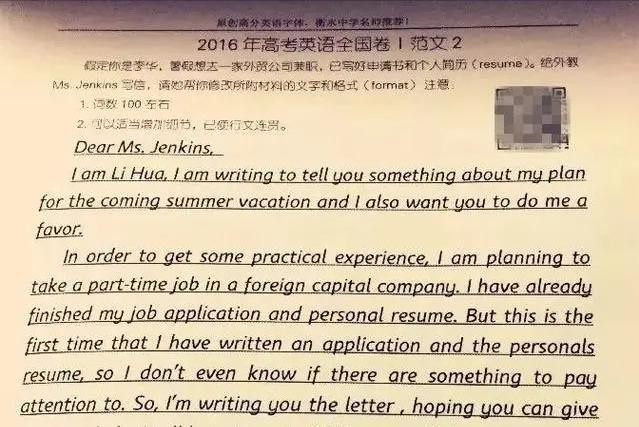 原创高分英语字体,衡水中学名师推荐!
2016 年高考英语全国卷 I 范文 2
假定你是李华,暑假想去一家外贸公司兼职,已写好申请书和个人简历(resume)。给外教
Ms. Jenkins 写信,请她帮你修改所附材料的文字和格式(format)注意:
1. 词数 100 左右
2. 可以适当增加细节,已使行文连贯。
Dear Ms. Jenkins,
I am Li Hua, I am writing to tell you something about my plan
for the coming summer vacation and I also want you to do me a
favor.
In order to get some practical experience, I am planning to
take a part-time job in a foreign capital company. I have already
finished my job application and personal resume. But this is the
first time that I have written an application and the personals
resume, so I don't even know if there are something to pay
attention to. So, I'm writing you the letter , hoping you can give